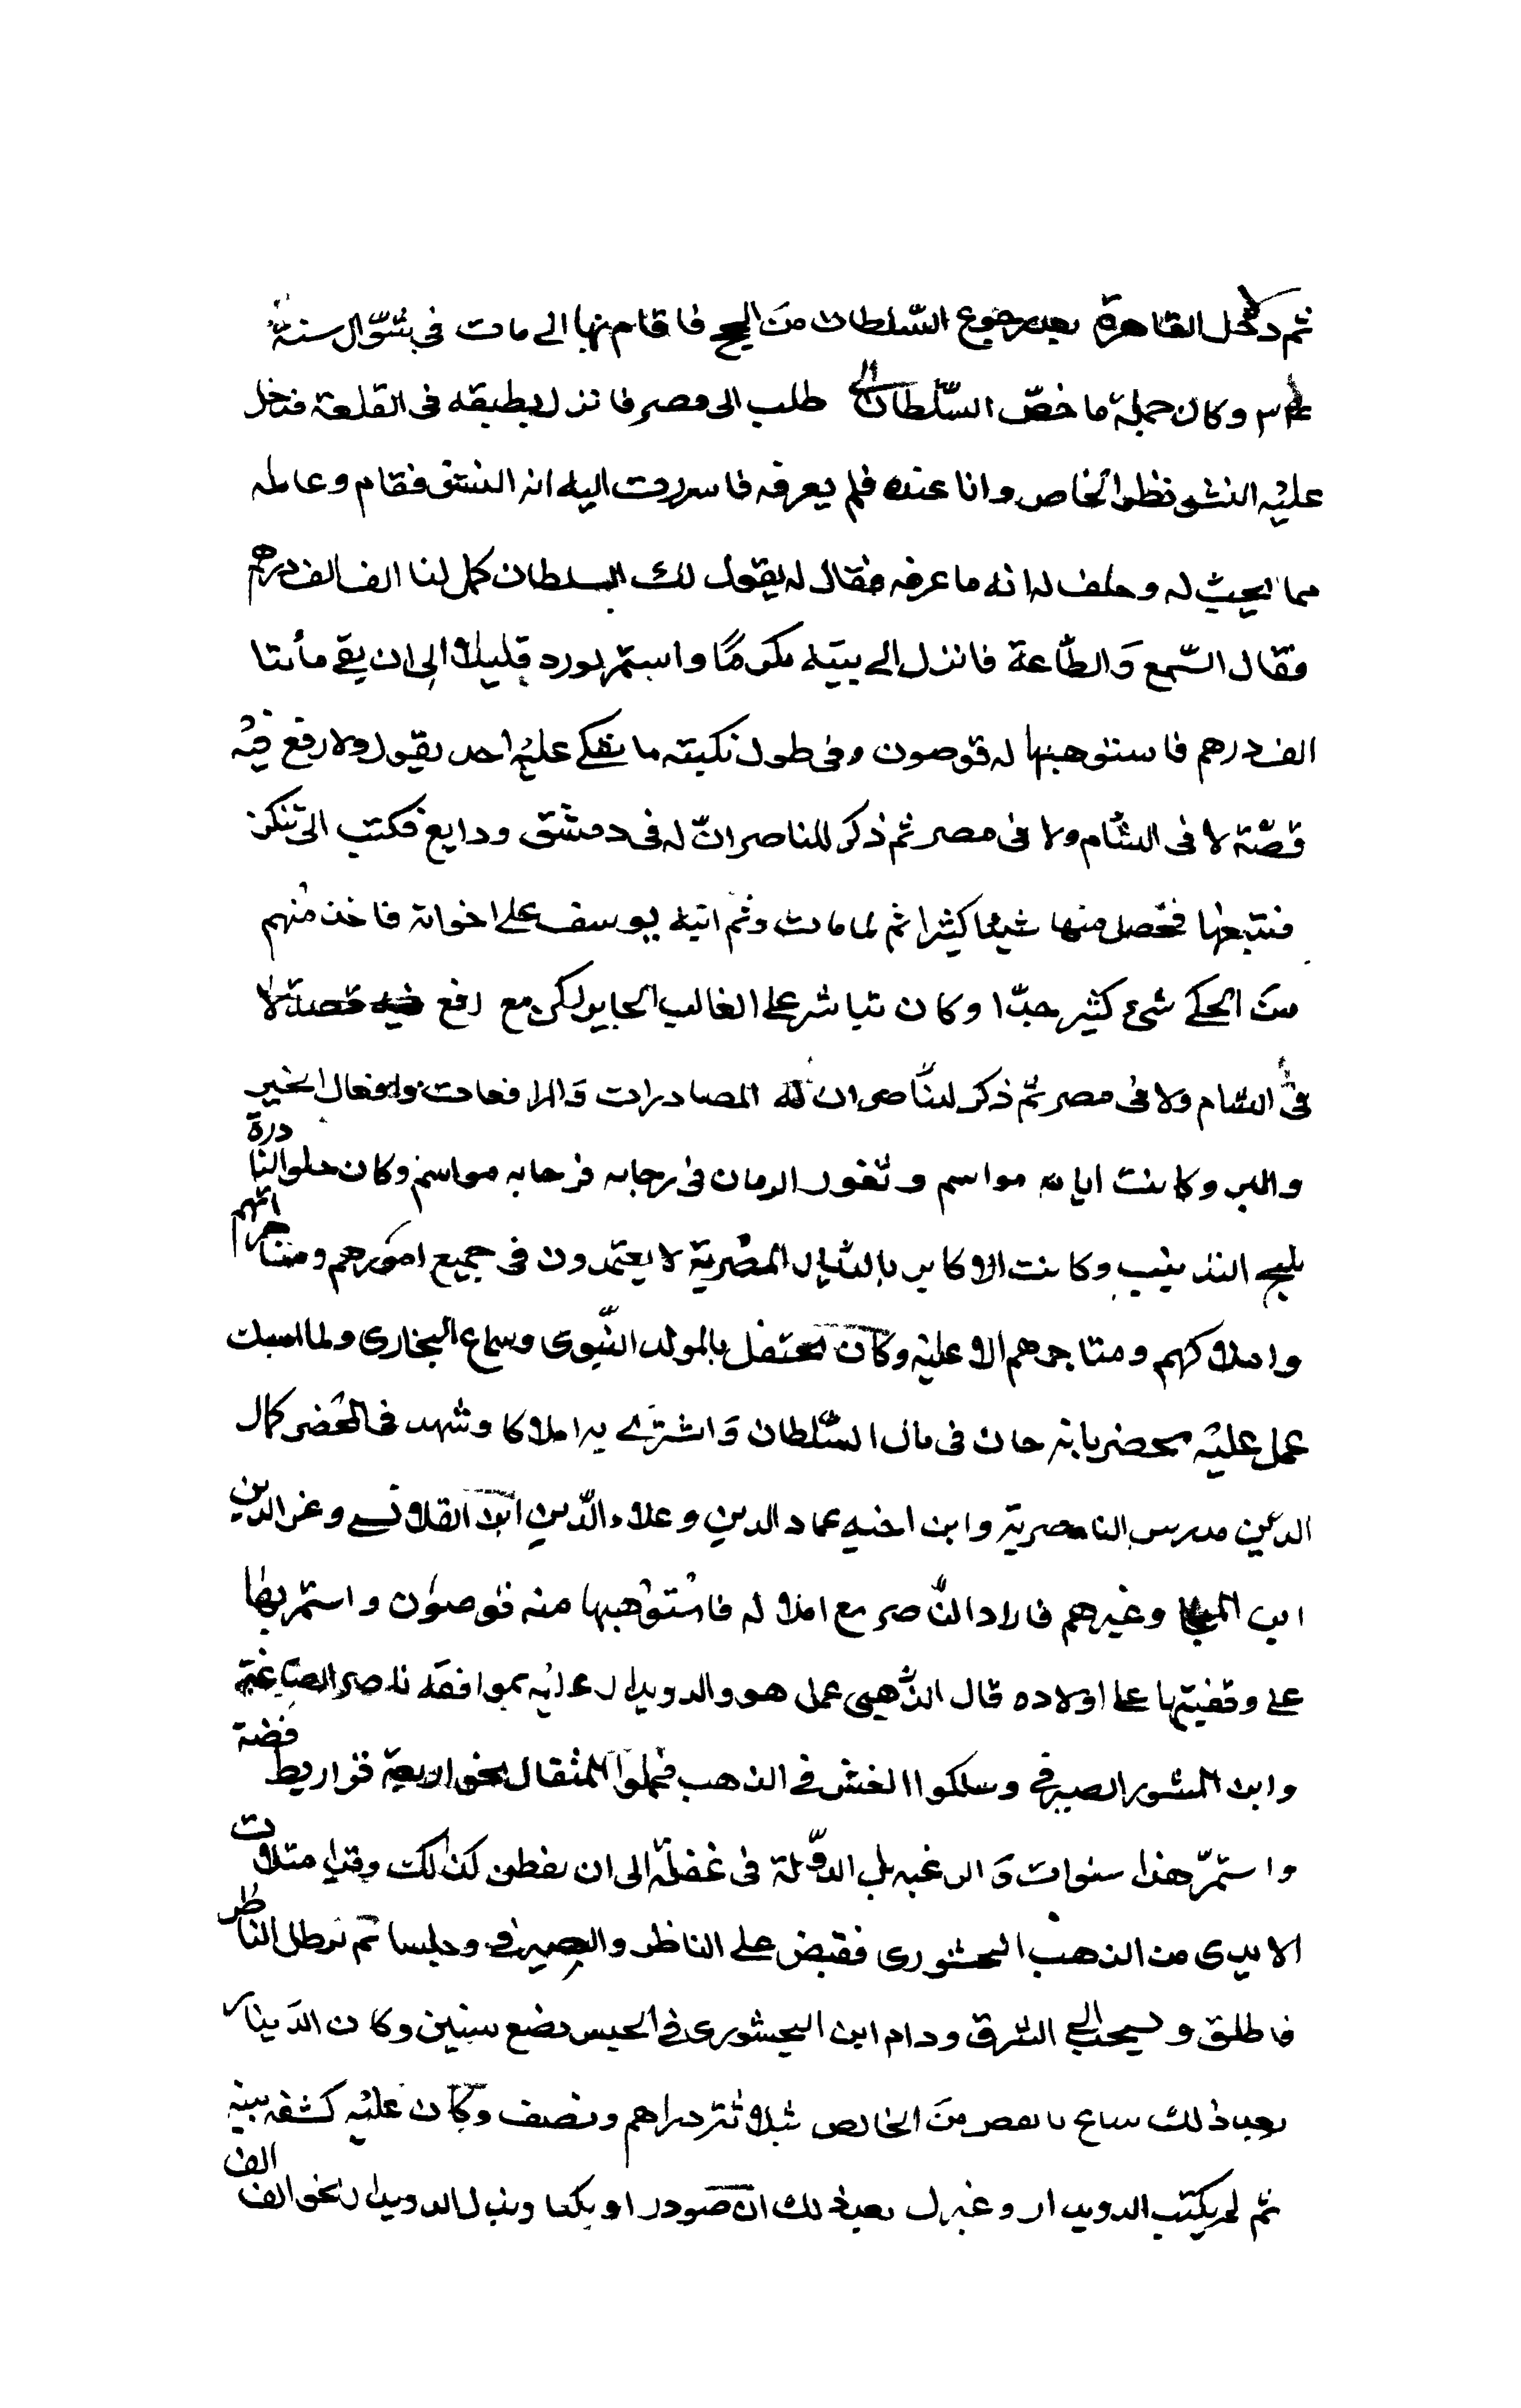 ثم دخل القاهرة بعد رجوع السّلطان من الحج فاقام بها الى مات في شوّال سنة
وكان جملة ما خصّ السّلطان الى طلب الى مصر فانزل بطبقه فى القلعة فدخل
عليه النشو نظر الخاص وانا عنده فلم يعرفه فاسررت اليه انه النشو فقام وعامله
مما يجب له وحلف له انه ما عرفه فقال له يقول لك السلطان كمل لنا الف الف درهم
فقال السّمع وَالطّاعة فانزل الى بيته مكرمًا واستمر يورد قليلا الى ان بقى مأتا
الف درهم فاستوهبها له قوصون وفى طول نكبته ما شكى عليه احد بقول ولا رفع فيه
قصّة لا فى الشام ولا فى مصر ثم ذكر للناصر انّ له فى دمشق ودايع فكتب الى تنكز
فتتبعها فحصل منها شيئا كثيرا ثم لما مات وثم ابنه يوسف على اخوانه فاخذ منهم
من الحكى شئ كثير جدّا وكان تباشر على الغالب الجابر لكن مع رفع فيه قصة لا
فى الشام ولا فى مصر ثم ذكر للناصر ان له المصادرات وَالمرافعات وافعال الخير
والبر وكانت ايامه مواسم وثغور الزمان فى رحابه مواسم وكان حلو النادرة
مليح التذنيب وكانت الاكابر بالديار المصرية لا يعتمدون فى جميع امورهم ومتاجراتهم
واملاكهم ومتاجرهم الا عليه وكان يحتفل بالمولد النبوى وسماع البخارى ولما امسك
عمل عليه محضر بانه خان فى مال السّلطان وَاشترى به املاكا وشهد فى المحضر كمال
الدين مدرس الناصرية وابن اخيه عماد الدين وعلاء الدّين ابن القلانسى وعز الدين
ابن المنجا وغيرهم فاراد النّاصر بيع املاكه فاستوهبها منه قوصون واستمر بها
على وقفيتها على اولاده قال الذّهبى عمل هو والدويدار عليه بموافقة ناصر الصياغة
وابن الصيرفى وسلكوا الغش فى الذهب فحملوا المثقال نحو اربعة قراريط فضة
واستمرّ هذا سنوات وَالرغبه بل الدوّلة فى غفلة الى ان يفطن لذلك وقد امتلات
الايدى من الذهب اليحشورى فقبض على الناظر والصيرفى وحبسا ثم تبرطل الناظر
فاطلق وسحب الى الشرق ودام ابن اليحشورى فى الحبس بضع سنين وكان الدّينار
بعد ذلك يباع بانقص من الخالص بثلاثة دراهم ونصف وكان عليه كشفه بينه
ثم لم يكتب الدويدار وغيره بعد ذلك ان صودر او نكب وبذل الدويدار نحو الف الف